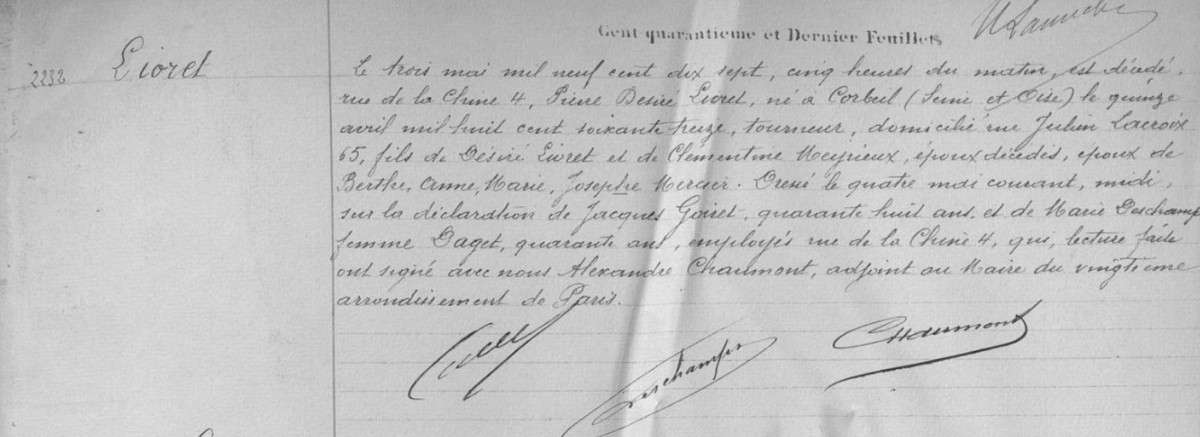 Cent quarantieme et Dernier Feuillets
2232 Lioret
Le trois mai mil neuf cent dix sept, cinq heures du matin, est décédé,
rue de la Chine 4, Pierre Desiré Lioret, né à Corbeil (Seine et Oise) le quinze
avril mil huit cent soixante treize, tourneur, domicilié rue Julien Lacroix
65, fils de Désiré Lioret et de Clémentine Meyrieux, époux décédés, époux de
Berthe, Anne, Marie, Josephe Mercier. Dressé le quatre mai courant, midi,
sur la déclaration de Jacques Goiret, quarante huit ans, et de Marie Deschamps
femme Daget, quarante ans, employés rue de la Chine 4, qui, lecture faite
ont signé avec nous Alexandre Chaumont, adjoint au Maire du vingtième
arrondissement de Paris.
Deschamps
Chaumont